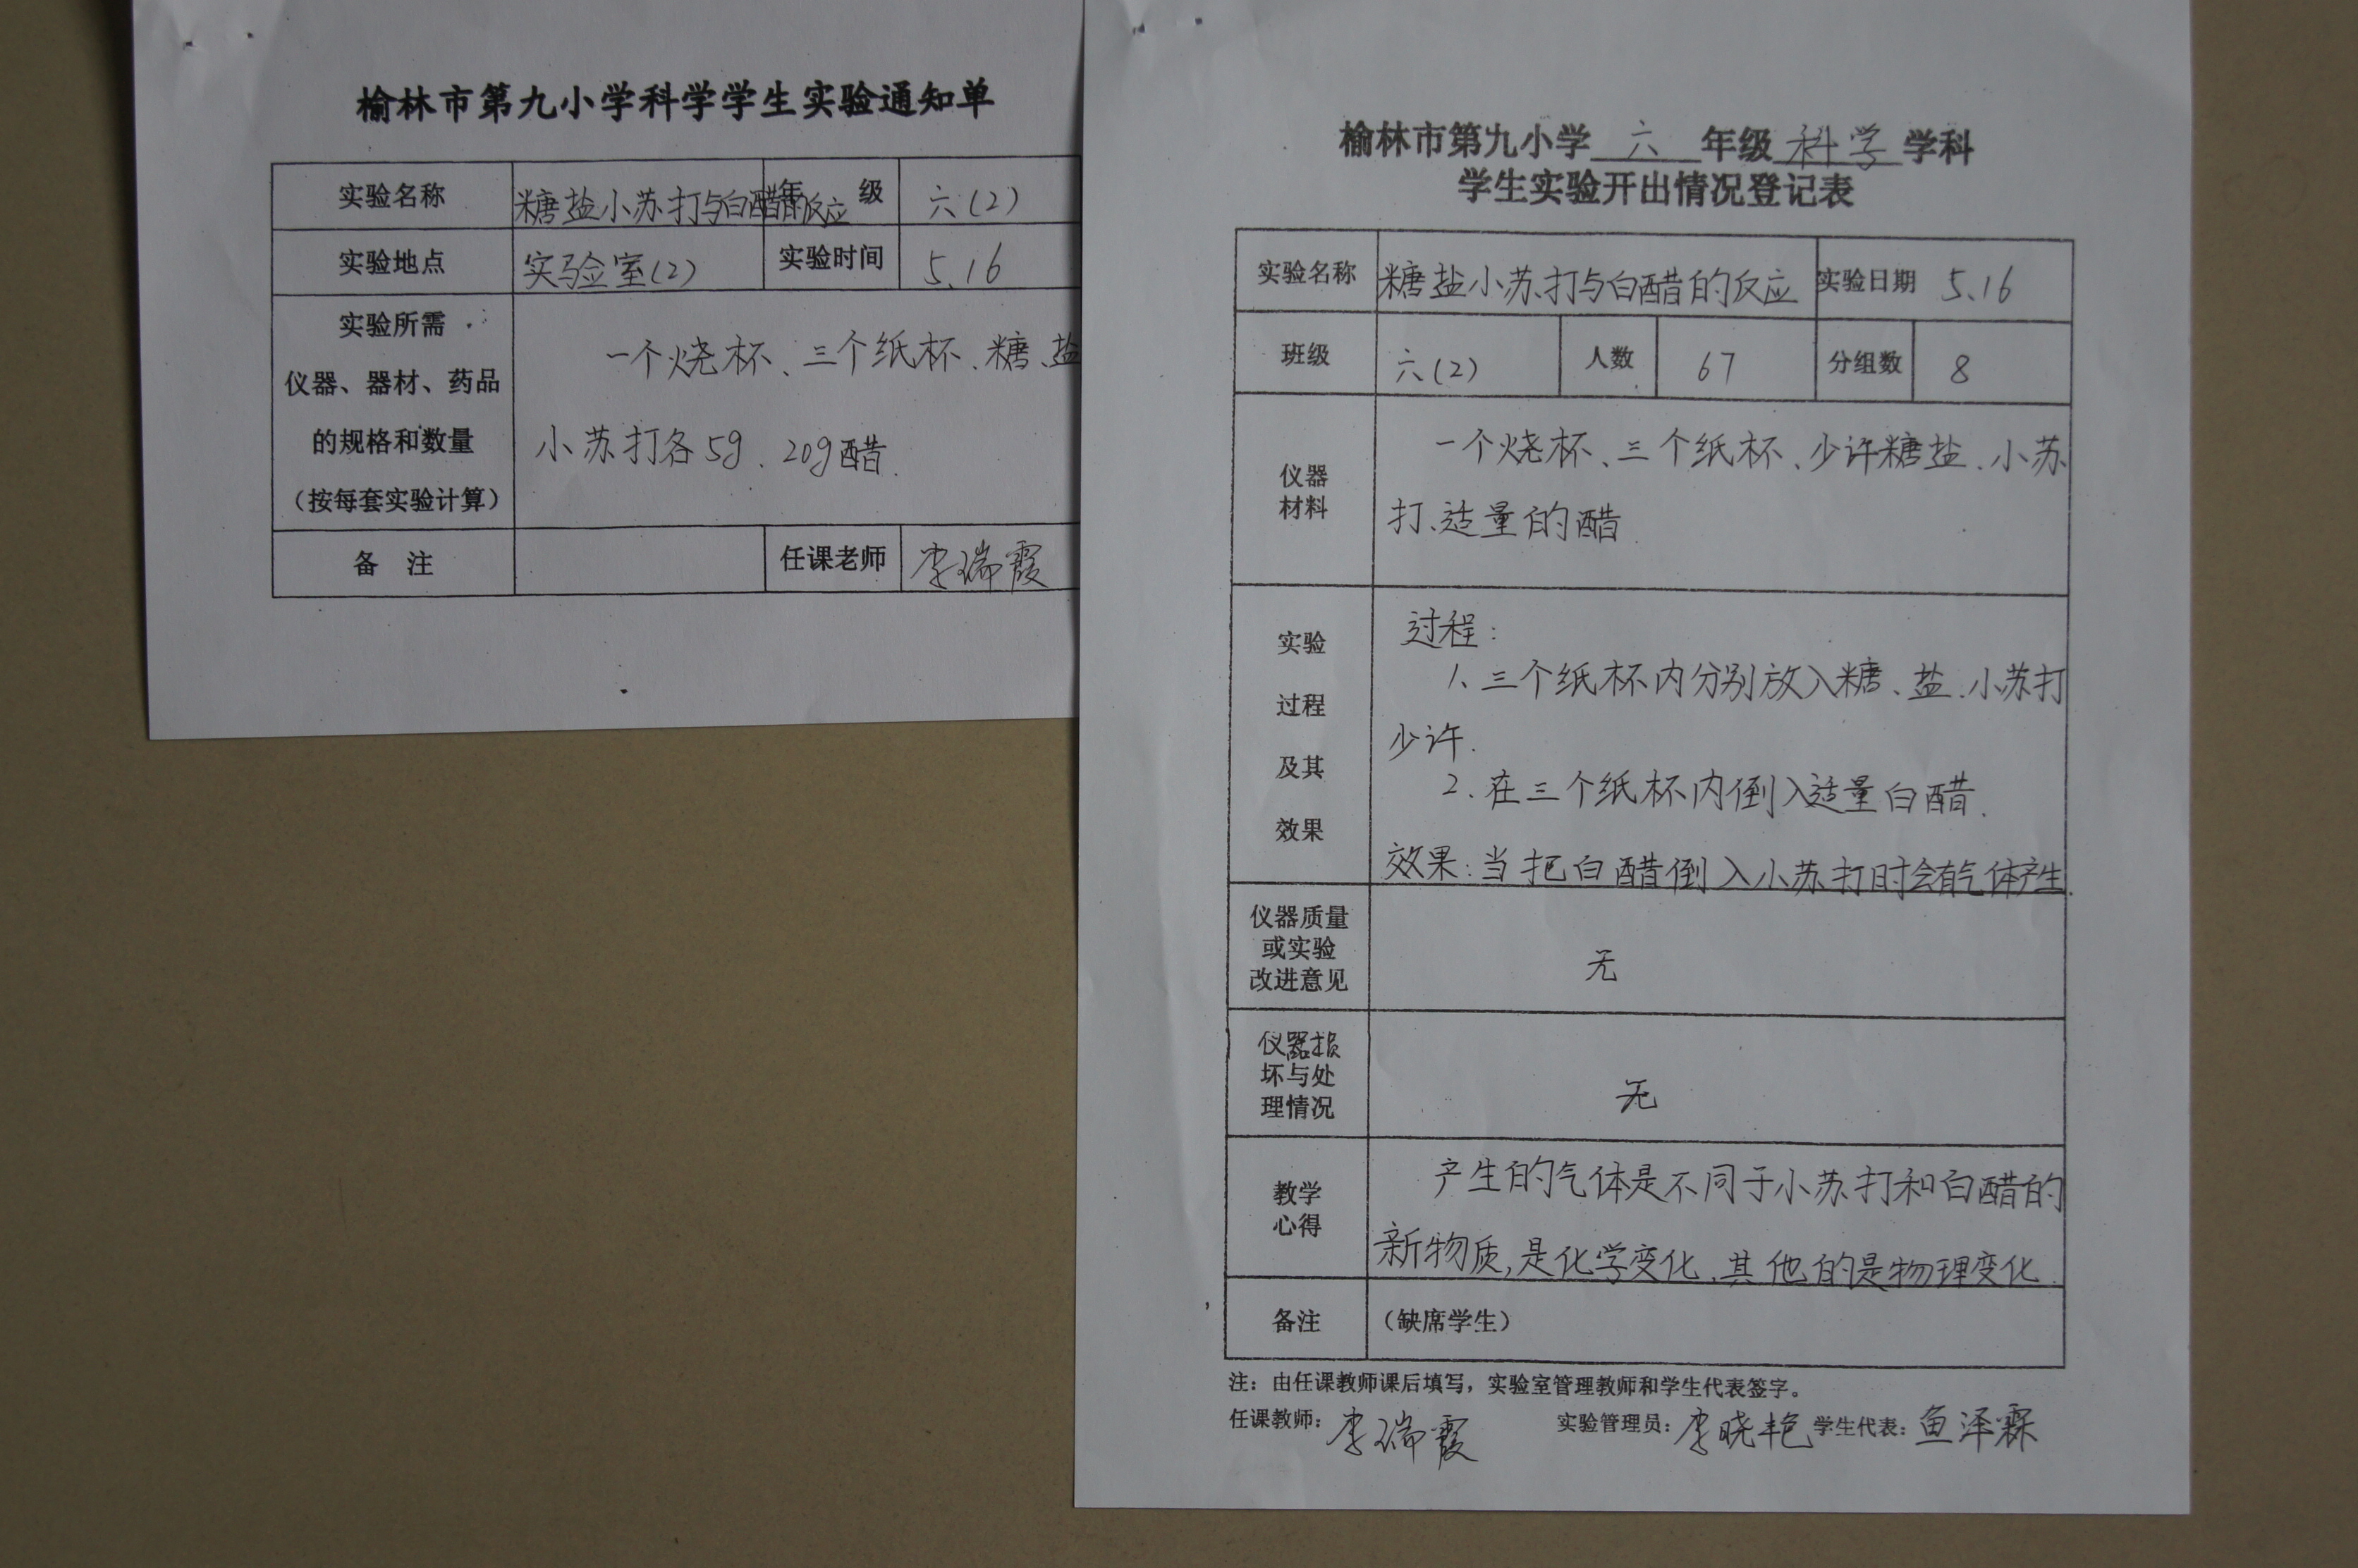 榆林市第九小学科学学生实验通知单
实验名称 糖盐小苏打与白醋的反应 年 级 六(2)
实验地点 实验室(2) 实验时间 5.16
实验所需
仪器、器材、药品
的规格和数量
（按每套实验计算）
一个烧杯、三个纸杯、糖、盐
小苏打各5g、20g醋.
备 注 任课老师 李瑞霞
榆林市第九小学 六 年级 科学 学科
学生实验开出情况登记表
实验名称 糖盐小苏打与白醋的反应 实验日期 5.16
班级 六(2) 人数 67 分组数 8
仪器
材料
一个烧杯、三个纸杯、少许糖盐、小苏
打、适量的醋.
实验
过程
及其
效果
过程:
1、三个纸杯内分别放入糖、盐、小苏打
少许.
2、在三个纸杯内倒入适量白醋.
效果:当把白醋倒入小苏打时会有气体产生.
仪器质量
或实验
改进意见
无
仪器损
坏与处
理情况
无
教学
心得
产生的气体是不同于小苏打和白醋的
新物质,是化学变化、其他的是物理变化.
备注 （缺席学生）
注：由任课教师课后填写，实验室管理教师和学生代表签字。
任课教师：李瑞霞 实验管理员：李晓艳 学生代表：鱼泽霖